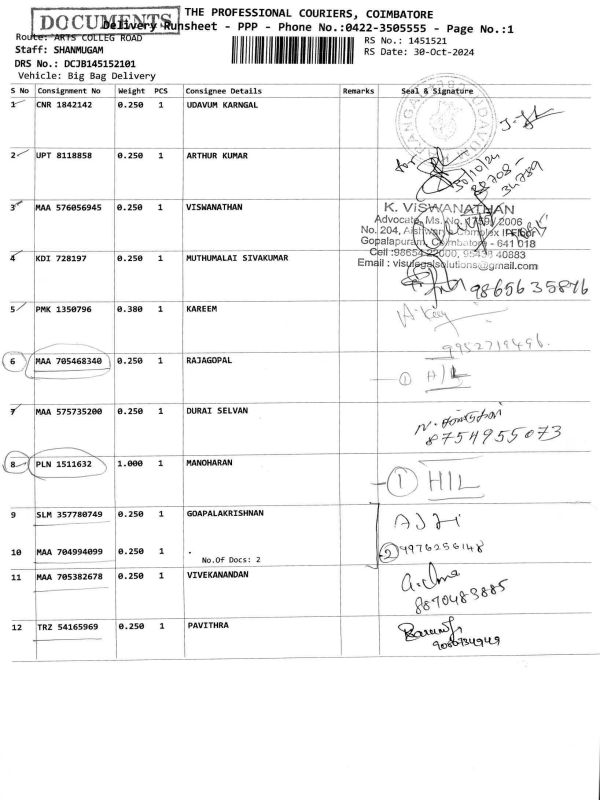 DOCUMENTS
THE PROFESSIONAL COURIERS, COIMBATORE
Delivery Runsheet - PPP - Phone No.:0422-3505555 - Page No.:1
Route: ARTS COLLEG ROAD
RS No.: 1451521
Staff: SHANMUGAM
RS Date: 30-Oct-2024
DRS No.: DCJB145152101
Vehicle: Big Bag Delivery
S No Consignment No Weight PCS Consignee Details Remarks Seal & Signature
1 CNR 1842142 0.250 1 UDAVUM KARNGAL
2 UPT 8118858 0.250 1 ARTHUR KUMAR
for
30/10/24
3 MAA 576056945 0.250 1 VISWANATHAN
K. VISWANATHAN
Advocate, Ms. No. 2006
No. 204, Complex
Gopalapuram, Coimbatore - 641 018
4 KDI 728197 0.250 1 MUTHUMALAI SIVAKUMAR
Cell :98654 22000, 40883
Email : visulegalsolutions@gmail.com
9865635876
5 PMK 1350796 0.380 1 KAREEM
9952719496
6 MAA 705468340 0.250 1 RAJAGOPAL
1 H/L
7 MAA 575735200 0.250 1 DURAI SELVAN
8754955073
8 PLN 1511632 1.000 1 MANOHARAN
1 H/L
9 SLM 357780749 0.250 1 GOAPALAKRISHNAN
10 MAA 704994099 0.250 1 .
No.Of Docs: 2
2 9976256148
11 MAA 705382678 0.250 1 VIVEKANANDAN
8870483885
12 TRZ 54165969 0.250 1 PAVITHRA